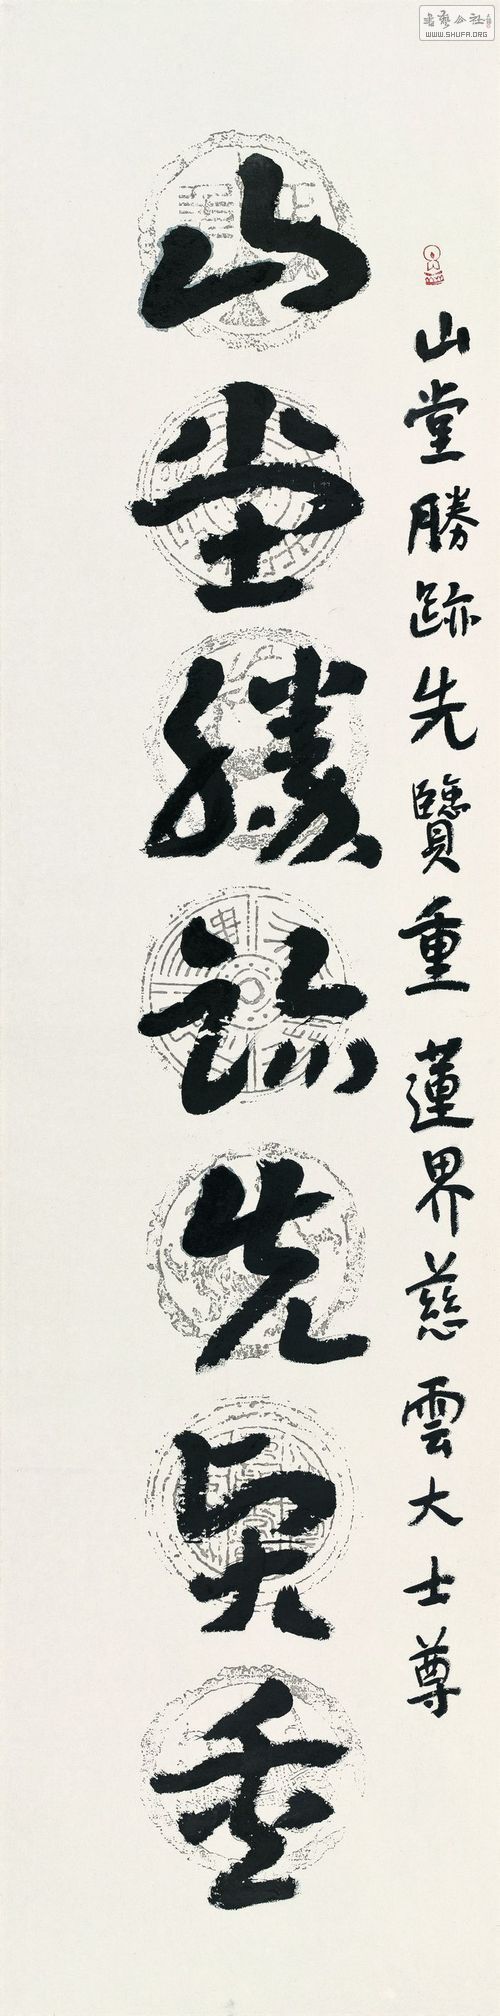 書藝公社
WWW.SHUFA.ORG
山堂勝跡先贒重蓮界慈雲大士尊
山堂勝跡先賢重